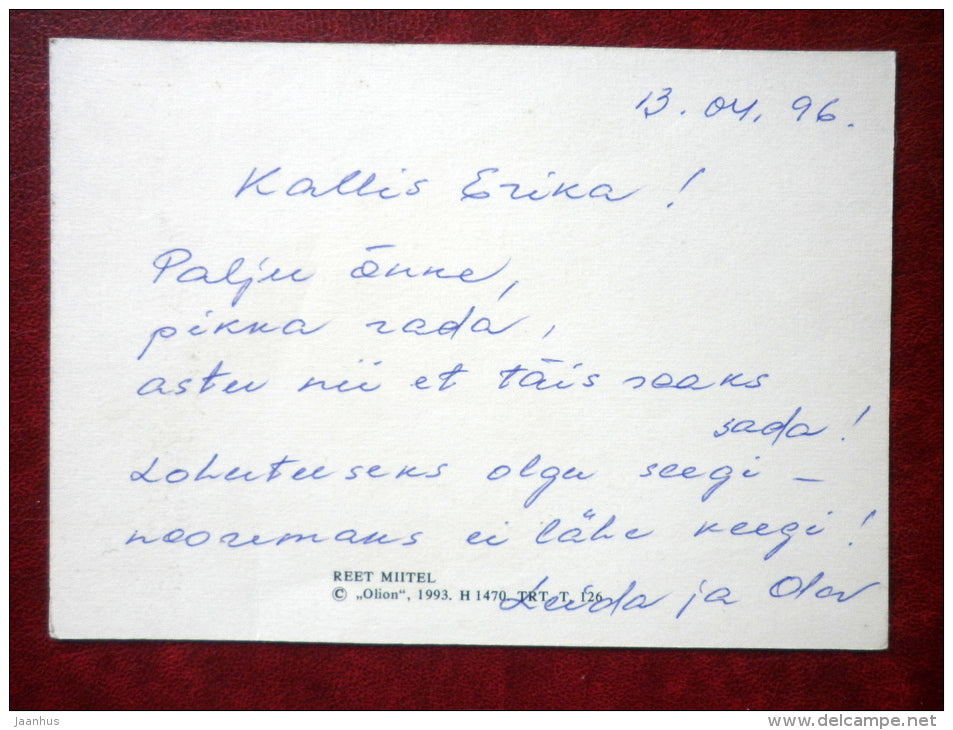 13.04.96.
Kallis Erika!
Palju õnne,
pikka rada,
astu nii et täis saaks
sada!
Lohutuseks olgu seegi –
nooremaks ei lähe keegi!
REET MIITEL
© „Olion“, 1993. H 1470. TRT. T. 126
Leida ja Olav
Jaanhus
www.delcampe.net